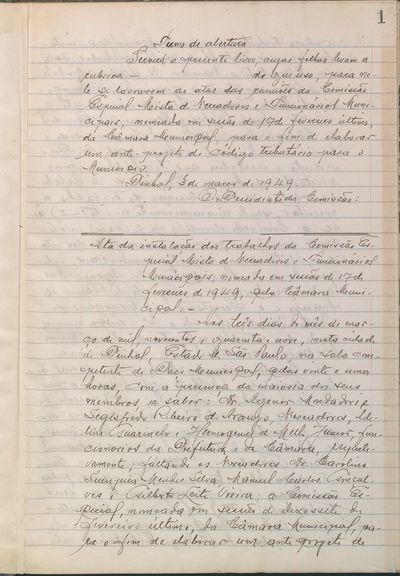 1
Termo de abertura
Servirá o presente livro, cujas folhas levam a
rubrica — de que uso, para ne-
le se lavrarem as atas das reuniões da Comissão
Especial Mista de Vereadores e Funcionários Muni-
cipais, nomeada em sessão de 17 de fevereiro último,
da Câmara Municipal, para o fim de elaborar
um ante-projeto de código tributário para o
Município.
Pinhal, 3 de março de 1949.
O Presidente da Comissão:
Ata da instalação dos trabalhos da Comissão Es-
pecial Mista de Vereadores e Funcionários
Municipais, nomeada em sessão de 17 de
fevereiro de 1949, pela Câmara Muni-
cipal. —
Aos três dias do mês de mar-
ço de mil, novecentos e quarenta e nove, nesta cidade
de Pinhal, Estado de São Paulo, na sala com-
petente do Paço Municipal, pelas vinte e uma
horas, com a presença da maioria dos seus
membros, a saber: Dr. Agenor Mondadori e
Segisfredo Ribeiro de Araujo, Vereadores,
Guarinelo e Hermogenes de Melo Junior, fun-
cionários da Prefeitura e da Câmara, respecti-
vamente; faltando os Vereadores Dr. Carolino
Mendes Silva, Manuel Carlos Gonçal-
ves e Gilberto Leite Vieira; a Comissão Es-
pecial, nomeada em sessão de dezessete de
fevereiro último, da Câmara Municipal, pa-
ra o fim de elaborar um ante projeto de